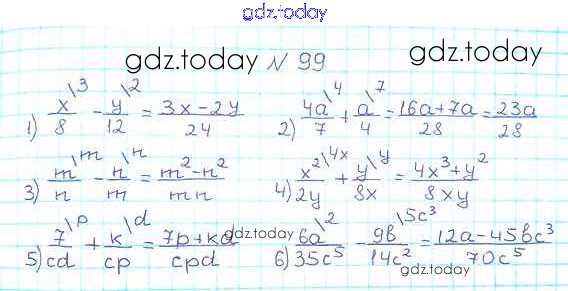 gdz.today
gdz.today № 99 gdz.today
1) x\3/8 - y\2/12 = 3x-2y/24 2) 4a\4/7 + a\7/4 = 16a+7a/28 = 23a/28
3) m\m/n - n\n/m = m²-n²/mn 4) x²\4x/2y + y\y/8x = 4x³+y²/8xy
5) 7\p/cd + k\d/cp = 7p+kd/cpd gdz.today 6) 6a\2/35c⁵ - 9b\5c³/14c² = 12a-45bc³/70c⁵
gdz.today